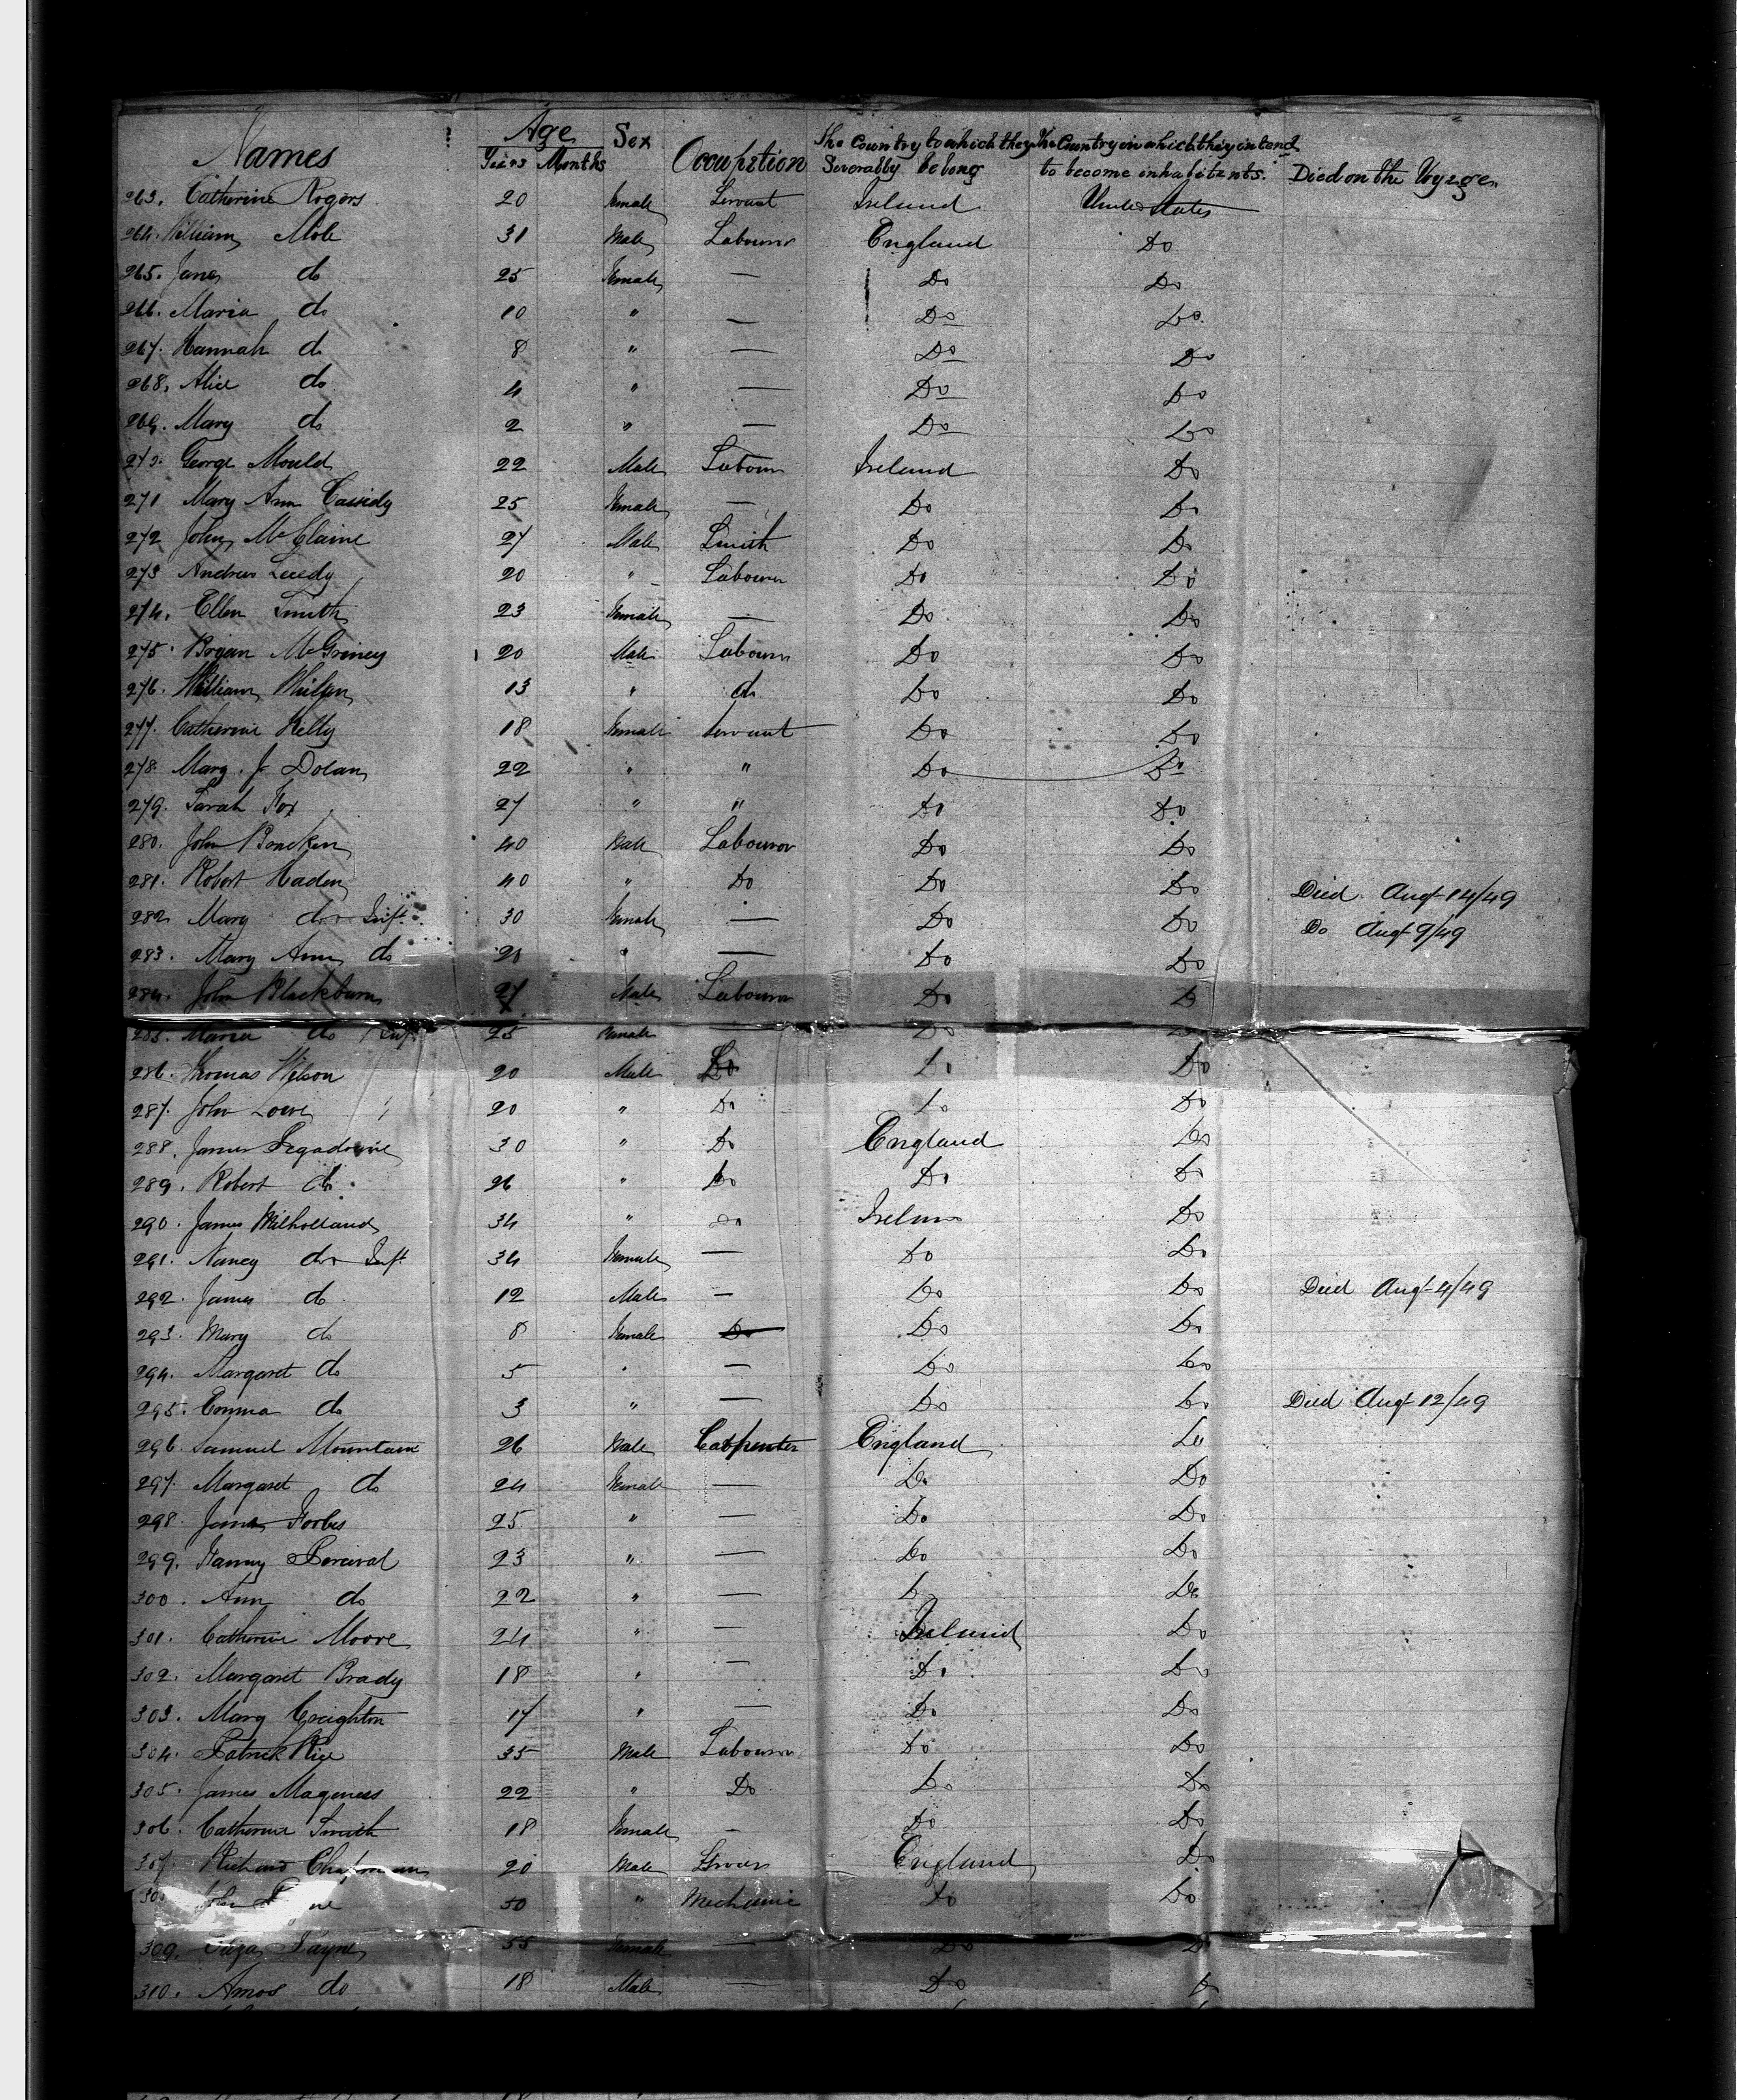 Names Age Sex Occupation The Country to which they The Country in which they intend
Years Months Severally belong to become inhabitants. Died on the Voyage
263. Catherine Rogers 20 Female Servant Ireland United States
264. William Mole 31 Male Labourer England Do
265. Jane do 25 Female — Do Do
266. Maria do 10 " — Do Do
267. Hannah do 8 " — Do Do
268. Alice do 4 " — Do Do
269. Mary do 2 " — Do Do
270. George Mould 22 Male Labourer Ireland Do
271 Mary Ann Cassidy 25 Female — Do Do
272 John McClaine 27 Male Smith Do Do
273 Andrew 20 " Labourer Do Do
274. Ellen Smith 23 Female — Do Do
275. Bryan McGriney 20 Male Labourer Do Do
276. William 13 " do Do Do
277. Catherine Kelly 18 Female Servant Do Do
278. Mary J Dolan 22 " " Do Do
279. Sarah Fox 27 " " Do Do
280. John 40 Male Labourer Do Do
281. Robert Haden 40 " Do Do Do Died Augt 14/49
282. Mary do & Inft. 30 Female — Do Do Do Augt 9/49
283. Mary Ann do 20 " — Do Do
284. John Blackburn 27 Male Labourer Do Do
285. Maria do Inft 25 Female Do Do
286. Thomas Wilson 20 Male Do Do Do
287. John Lowe 20 " Do Do Do
288. James 30 " Do England Do
289. Robert do 26 " Do Do Do
290. James Milholland 34 " Do Ireland Do
291. Nancy do & Inft. 34 Female — Do Do
292. James do 12 Male — Do Do Died Augt 4/49
293. Mary do 8 Female Do Do Do
294. Margaret do 5 " — Do Do
295. Emma do 3 " — Do Do Died Augt 12/49
296. Samuel Mountain 26 Male Carpenter England Do
297. Margaret do 24 Female — Do Do
298. Forbes 25 " — Do Do
299. Fanny Percival 23 " — Do Do
300. Ann do 22 " — Do Do
301. Catherine Moore 24 " — Ireland Do
302. Margaret Brady 18 " — Do Do
303. Mary Creighton 17 " — Do Do
304. Patrick Rice 35 Male Labourer Do Do
305. James Magness 22 " Do Do Do
306. Catherine Smith 18 Female — Do Do
307. Richard Chapman 20 Male England Do
John 50 " Mechanic Do Do
309. Eliza Payne 55 Female — Do Do
310. Amos do 18 Male — Do Do